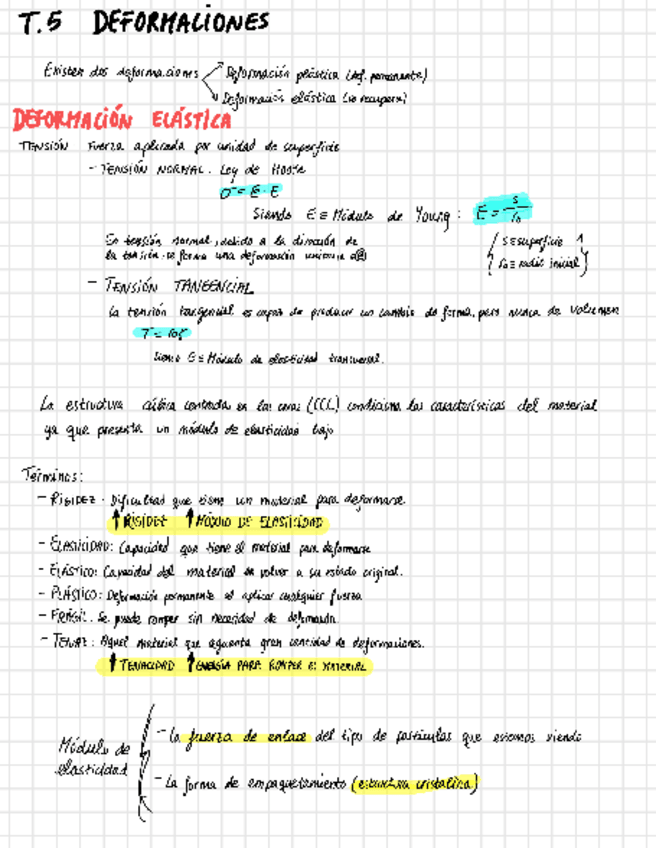 T.5 DEFORMACIONES
Existen dos deformaciones
Deformación plástica (def. permanente)
Deformación elástica (se recupera)
DEFORMACIÓN ELÁSTICA
TENSIÓN Fuerza aplicada por unidad de superficie
- TENSIÓN NORMAL. Ley de Hooke
σ = E · ε
Siendo E ≡ Módulo de Young: E = S / r₀
En tensión normal, debido a la dirección de
la tensión se forma una deformación
( S ≡ superficie
r₀ ≡ radio inicial )
- TENSIÓN TANGENCIAL
La tensión tangencial es capaz de producir un cambio de forma, pero nunca de volumen
Siendo G ≡ Módulo de elasticidad transversal.
La estructura cúbica centrada en las caras (CCC) condiciona las características del material
ya que presenta un módulo de elasticidad bajo
Términos:
- RIGIDEZ. Dificultad que tiene un material para deformarse.
↑ RIGIDEZ ↑ MÓDULO DE ELASTICIDAD
- ELASTICIDAD: Capacidad que tiene el material para deformarse
- ELÁSTICO: Capacidad del material en volver a su estado original.
- PLÁSTICO: Deformación permanente al aplicar cualquier fuerza
- FRÁGIL. Se puede romper sin necesidad de deformación.
- TENAZ: Aquel material que aguanta gran cantidad de deformaciones.
↑ TENACIDAD ↑ ENERGÍA PARA ROMPER EL MATERIAL
Módulo de
elasticidad
- La fuerza de enlace del tipo de partículas que estemos viendo
- La forma de empaquetamiento (estructura cristalina)